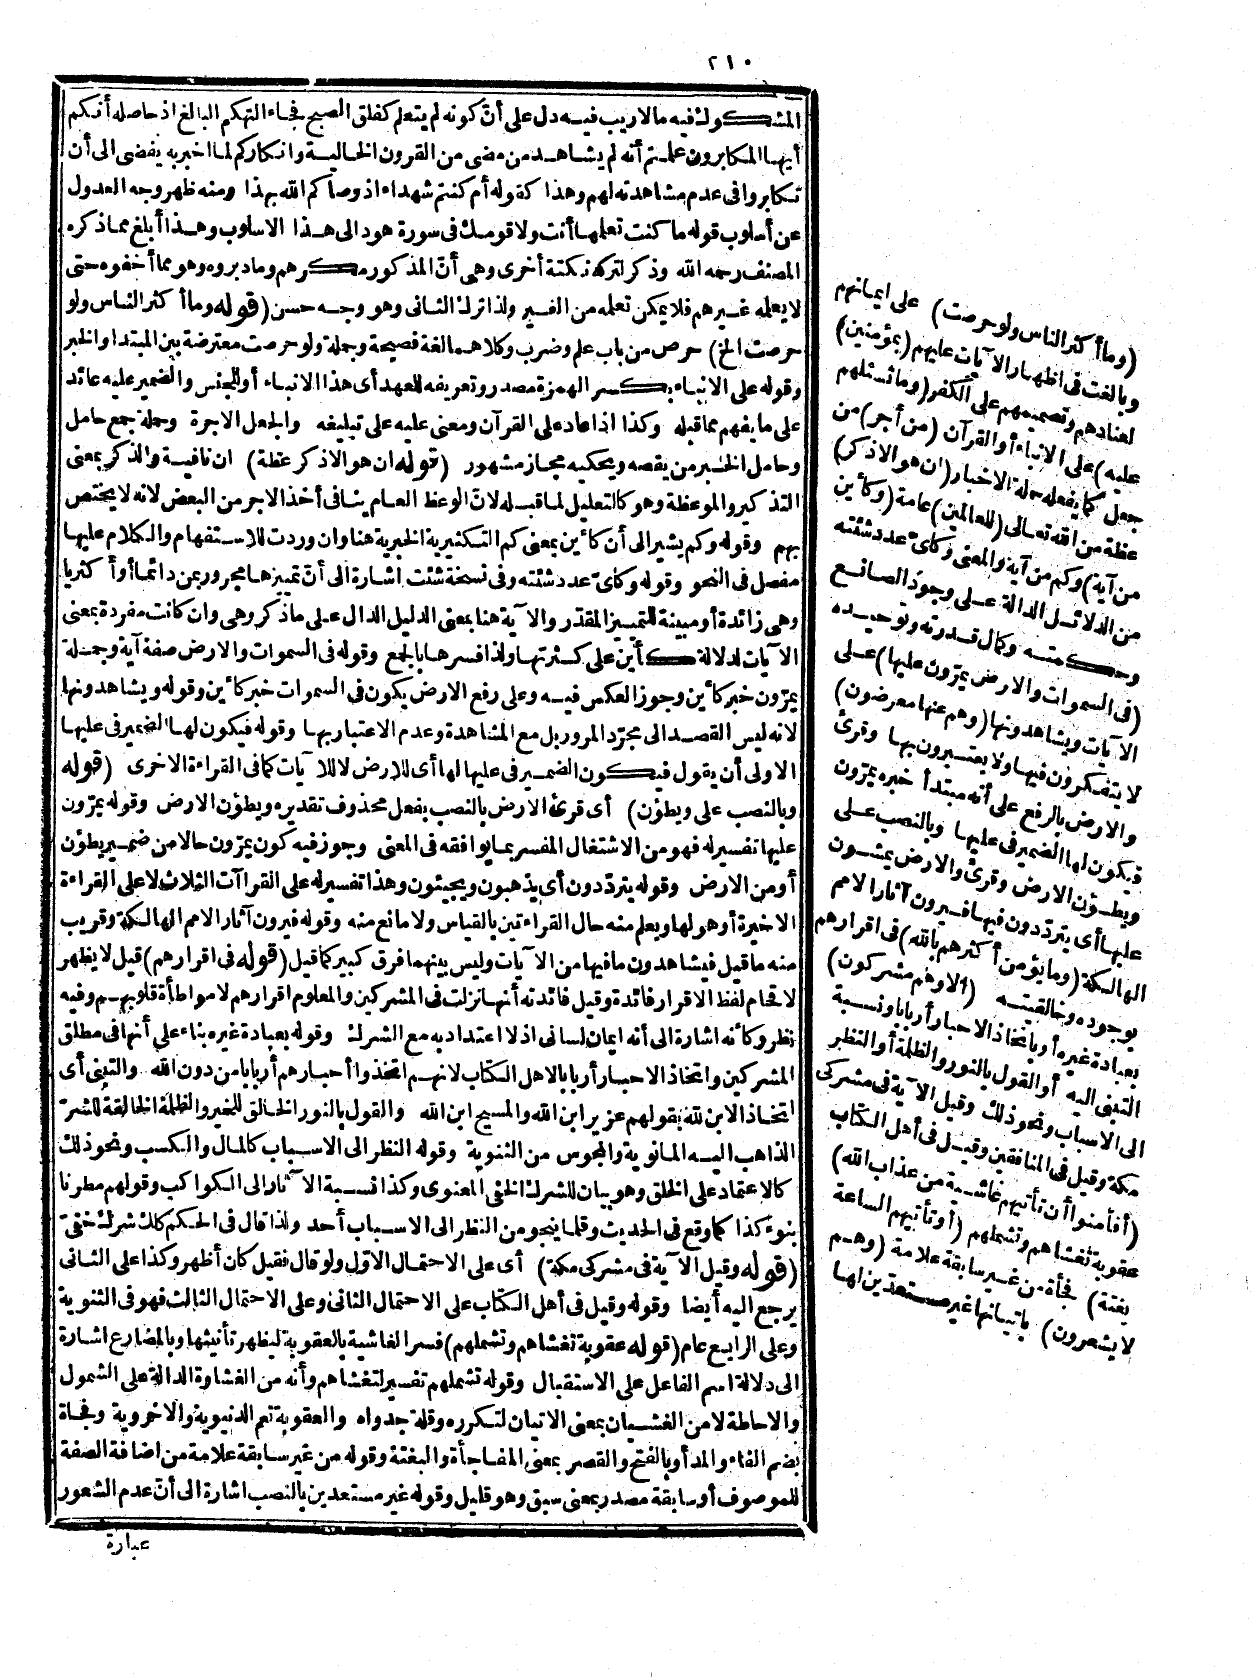 ٢١٠
المشكوك فيه ما لا ريب فيه دل على أنّ كونه لم يتعلم كفلق الصبح فجاء التهكم البالغ اذ حاصله أنكم
أيها المكابرون علمتم أنه لم يشاهد من مضى من القرون الخالية وانكاركم لما اخبر به يفضى الى أن
تكابروا فى عدم مشاهدته لهم وهذا كقوله أم كنتم شهداء اذ وصاكم الله بهذا ومنه ظهر وجه العدول
عن أسلوب قوله ما كنت تعلمها أنت ولا قومك فى سورة هود الى هذا الاسلوب وهذا أبلغ مما ذكره
المصنف رحمه الله وذكر لتركه نكتة أخرى وهى أنّ المذكور مكرهم وما دبروه وهو مما أخفوه حتى
لا يعلمه غيرهم فلا يمكن تعلمه من الغير ولذا ترك الثانى وهو وجه حسن (قوله وما أكثر الناس ولو
حرصت الخ) حرص من باب علم وضرب وكلاهما لغة فصيحة وجملة ولو حرصت معترضة بين المبتدا والخبر
وقوله على الانباء بكسر الهمزة مصدر وتعريفه للعهد أى هذا الانباء أو للجنس والضمير عليه عائد
على ما يفهم مما قبله وكذا اذا عاد على القرآن ومعنى عليه على تبليغه والجعل الاجرة وحملة جمع حامل
وحامل الخبر من يقصه ويحكيه مجاز مشهور (قوله ان هو الا ذكر عظة) ان نافية والذكر بمعنى
التذكير والموعظة وهو كالتعليل لما قبله لانّ الوعظ العام ينافى أخذ الاجر من البعض لانه لا يختص
بهم وقوله وكم يشير الى أن كأين بمعنى كم التكثيرية الخبرية هنا وان وردت للاستفهام والكلام عليها
مفصل فى النحو وقوله وكاىّ عدد شئته وفى نسخة شئت اشارة الى أنّ تمييزها مجرور بمن دائما أو أكثريا
وهى زائدة أو مبينة للتمييز المقدر والآية هنا بمعنى الدليل الدال على ماذكر وهى وان كانت مفردة بمعنى
الآيات لدلالة كأين على كثرتها ولذا فسرها بالجمع وقوله فى السموات والارض صفة آية وجملة
يمرّون خبر كأين وجوز العكس فيه وعلى رفع الارض يكون فى السموات خبر كأين وقوله ويشاهدونها
لانه ليس القصد الى مجرّد المرور بل مع المشاهدة وعدم الاعتبار بها وقوله فيكون لها الضمير فى عليها
الاولى أن يقول فيكون الضمير فى عليها لها أى للارض لا للآيات كما فى القراءة الاخرى (قوله
وبالنصب على ويطؤن) أى قرئ الارض بالنصب بفعل محذوف تقديره ويطؤن الارض وقوله يمرّون
عليها تفسير له فهو من الاشتغال المفسر بما يوافقه فى المعنى وجوز فيه كون يمرّون حالا من ضمير يطؤن
أو من الارض وقوله يتردّدون أى يذهبون ويجيئون وهذا تفسير له على القراآت الثلاث لا على القراءة
الاخيرة أو هو لها ويعلم منه حال القراءتين بالقياس ولا مانع منه وقوله فيرون آثار الامم الهالكة وقريب
منه ما قيل فيشاهدون ما فيها من الآيات وليس بينهما فرق كبير كما قيل (قوله فى اقرارهم) قيل لا يظهر
لاقحام لفظ الاقرار فائدة وقيل فائدته أنها نزلت فى المشركين والمعلوم اقرارهم لا مواطأة قلوبهم وفيه
نظر وكأنه اشارة الى أنه ايمان لسانى اذ لا اعتداد به مع الشرك وقوله بعبادة غيره بناء على أنها فى مطلق
المشركين واتخاذ الاحبار أربابا لاهل الكتاب لانهم اتخذوا أحبارهم أربابا من دون الله والتبنى أى
اتخاذ الابن لله بقولهم عزير ابن الله والمسيح ابن الله والقول بالنور الخالق للخير والظلمة الخالقة للشرّ
الذاهب اليه المانوية والمجوس من الثنوية وقوله النظر الى الاسباب كالمال والكسب ونحو ذلك
كالاعتماد على الخلق وهو بيان للشرك الخفى المعنوى وكذا نسبة الآثار الى الكواكب وقولهم مطرنا
بنوء كذا كما وقع فى الحديث وقلما ينجو من النظر الى الاسباب أحد ولذا قال فى الحكم كلك شرك خفىّ
(قوله وقيل الآية فى مشركى مكة) أى على الاحتمال الاوّل ولو قال فقيل كان أظهر وكذا على الثانى
يرجع اليه أيضا وقوله وقيل فى أهل الكتاب على الاحتمال الثانى وعلى الاحتمال الثالث فهو فى الثنوية
وعلى الرابع عام (قوله عقوبة تغشاهم وتشملهم) فسر الغاشية بالعقوبة ليظهر تأنيثها وبالمضارع اشارة
الى دلالة اسم الفاعل على الاستقبال وقوله تشملهم تفسير لتغشاهم وأنه من الغشاوة الدالة على الشمول
والاحاطة لا من الغشيان بمعنى الاتيان لتكرره وقلة جدواه والعقوبة تعم الدنيوية والاخروية وفجاة
بضم الفاء والمد أو بالفتح والقصر بمعنى المفاجأة والبغتة وقوله من غير سابقة علامة من اضافة الصفة
للموصوف أو سابقة مصدر بمعنى سبق وهو قليل وقوله غير مستعدين بالنصب اشارة الى أنّ عدم الشعور
عبارة
(وما أكثر الناس ولو حرصت) على ايمانهم
وبالغت فى اظهار الآيات عليهم (بمؤمنين)
لعنادهم وتصميمهم على الكفر (وما تسئلهم
عليه) على الانباء أو القرآن (من أجر) من
جعل كما يفعله حملة الاخبار (ان هو الا ذكر)
عظة من الله تعالى (للعالمين) عامة (وكأين
من آية) وكم من آية والمعنى وكاىّ عدد شئته
من الدلائل الدالة على وجود الصانع
وحكمته وكمال قدرته وتوحيده
(فى السموات والارض يمرّون عليها) على
الآيات ويشاهدونها (وهم عنها معرضون)
لا يتفكرون فيها ولا يعتبرون بها وقرئ
والارض بالرفع على أنه مبتدأ خبره يمرّون
فيكون لها الضمير فى عليها وبالنصب على
ويطؤن الارض وقرئ والارض يمشون
عليها أى يتردّدون فيها فيرون آثار الامم
الهالكة (وما يؤمن أكثرهم بالله) فى اقرارهم
بوجوده وخالقيته (الا وهم مشركون)
بعبادة غيره أو باتخاذ الاحبار أربابا ونسبة
التبنى اليه أو القول بالنور والظلمة أو النظر
الى الاسباب ونحو ذلك وقيل الآية فى مشركى
مكة وقيل فى المنافقين وقيل فى أهل الكتاب
(أفأمنوا أن تأتيهم غاشية من عذاب الله)
عقوبة تغشاهم وتشملهم (أو تأتيهم الساعة
بغتة) فجأة من غير سابقة علامة (وهم
لا يشعرون) باتيانها غير مستعدين لها